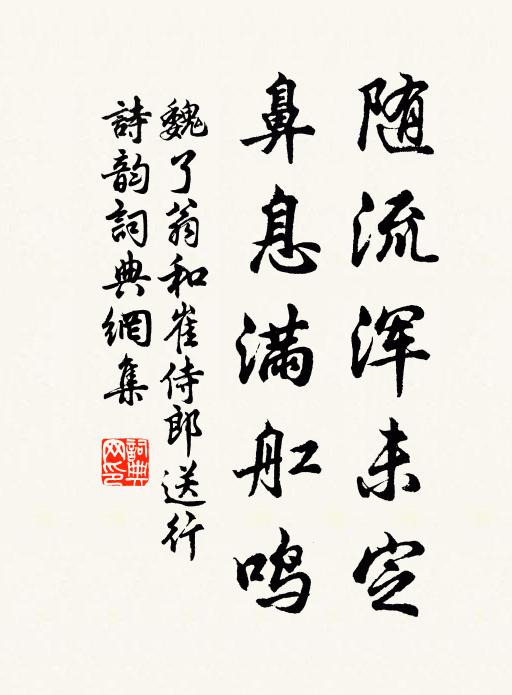 随流浑未定
鼻息满舡鸣
魏了翁和崔侍郎送行
詩韵詞典網集
詞典網印